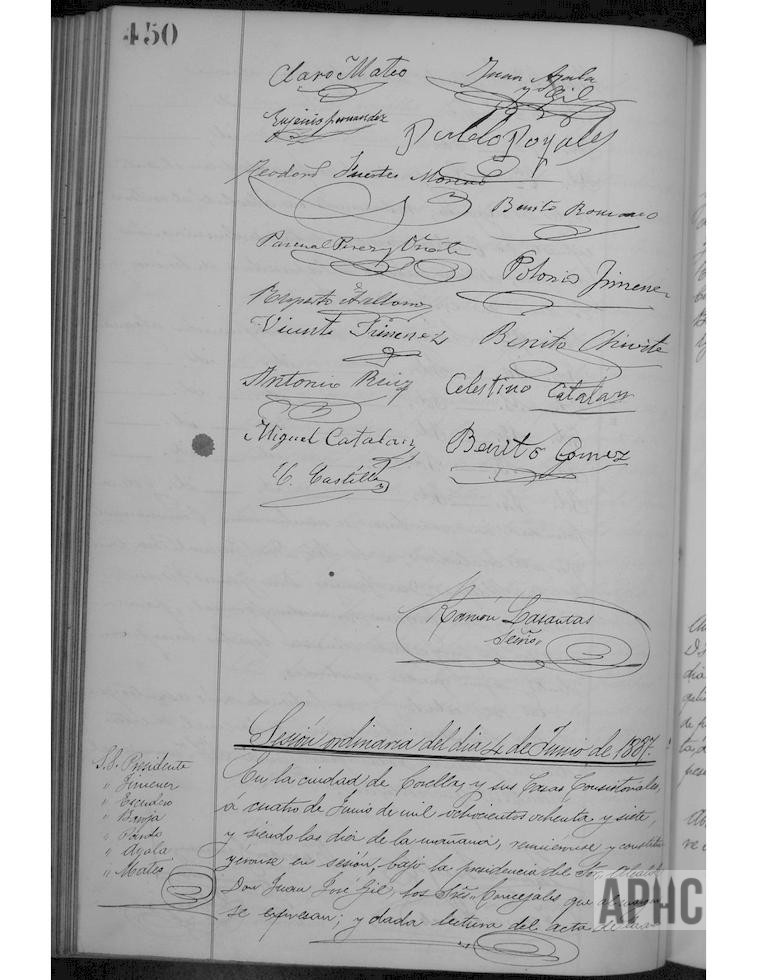 450
Claro Mateo
Juan Ayala
y Gil
Eugenio Fernandez
Pablo Poyales
Teodoro Fuertes Moreno
Benito Romano
Pascual Perez y Oñate
Polonio Jimenez
Ruperto Arellano
Vicente Jimenez
Benito Chivite
Antonio Ruiz
Celestino Catalan
Miguel Catalan
Benito Gomez
C. Castilla
Ramón Lasantas
Srio
Sesión ordinaria del dia 4 de Junio de 1887.
S.S. Presidente
" Jimenez
" Escudero
"
" Pardo
" Ayala
" Mateo
En la ciudad de Corella, y sus Casas Consistoriales,
á cuatro de Junio de mil ochocientos ochenta y siete,
y siendo las diez de la mañana, reuniéronse y constitu
yéronse en sesión, bajo la presidencia del Sor. Alcalde
Don Juan José Gil, los Sres. Concejales que al margen
se expresan; y dada lectura del acta de la
APHC